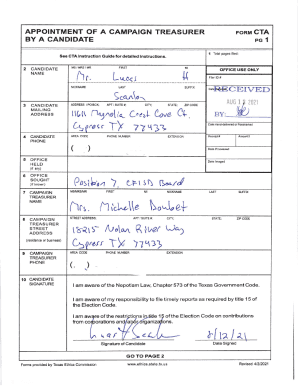 APPOINTMENT OF A CAMPAIGN TREASURER BY A CANDIDATE
FORM CTA
PG 1
See CTA Instruction Guide for detailed instructions.
1 Total pages filed:
2 CANDIDATE NAME
MS / MRS / MR FIRST MI
Mr. Lucas H
NICKNAME LAST SUFFIX
Scanlon
OFFICE USE ONLY
Filer ID #
RECEIVED
AUG 12 2021
BY:
3 CANDIDATE MAILING ADDRESS
ADDRESS / PO BOX; APT / SUITE #; CITY; STATE; ZIP CODE
Magnolia Crest Cove Ct.
Cypress TX 77433
Date Hand-delivered or Postmarked
4 CANDIDATE PHONE
AREA CODE PHONE NUMBER EXTENSION
( )
Date Processed
5 OFFICE HELD (if any)
Date Imaged
6 OFFICE SOUGHT (if known)
Position 7, CFISD Board
7 CAMPAIGN TREASURER NAME
MS/MRS/MR FIRST MI NICKNAME LAST SUFFIX
Mrs. Michelle
8 CAMPAIGN TREASURER STREET ADDRESS (residence or business)
STREET ADDRESS; APT / SUITE #; CITY; STATE; ZIP CODE
18215 Nolan River Way
Cypress TX 77433
9 CAMPAIGN TREASURER PHONE
AREA CODE PHONE NUMBER EXTENSION
( )
10 CANDIDATE SIGNATURE
I am aware of the Nepotism Law, Chapter 573 of the Texas Government Code.
I am aware of my responsibility to file timely reports as required by title 15 of the Election Code.
I am aware of the restrictions in title 15 of the Election Code on contributions from corporations and labor organizations.
8/12/21
Signature of Candidate Date Signed
GO TO PAGE 2
Forms provided by Texas Ethics Commission www.ethics.state.tx.us Revised 1/2/2021